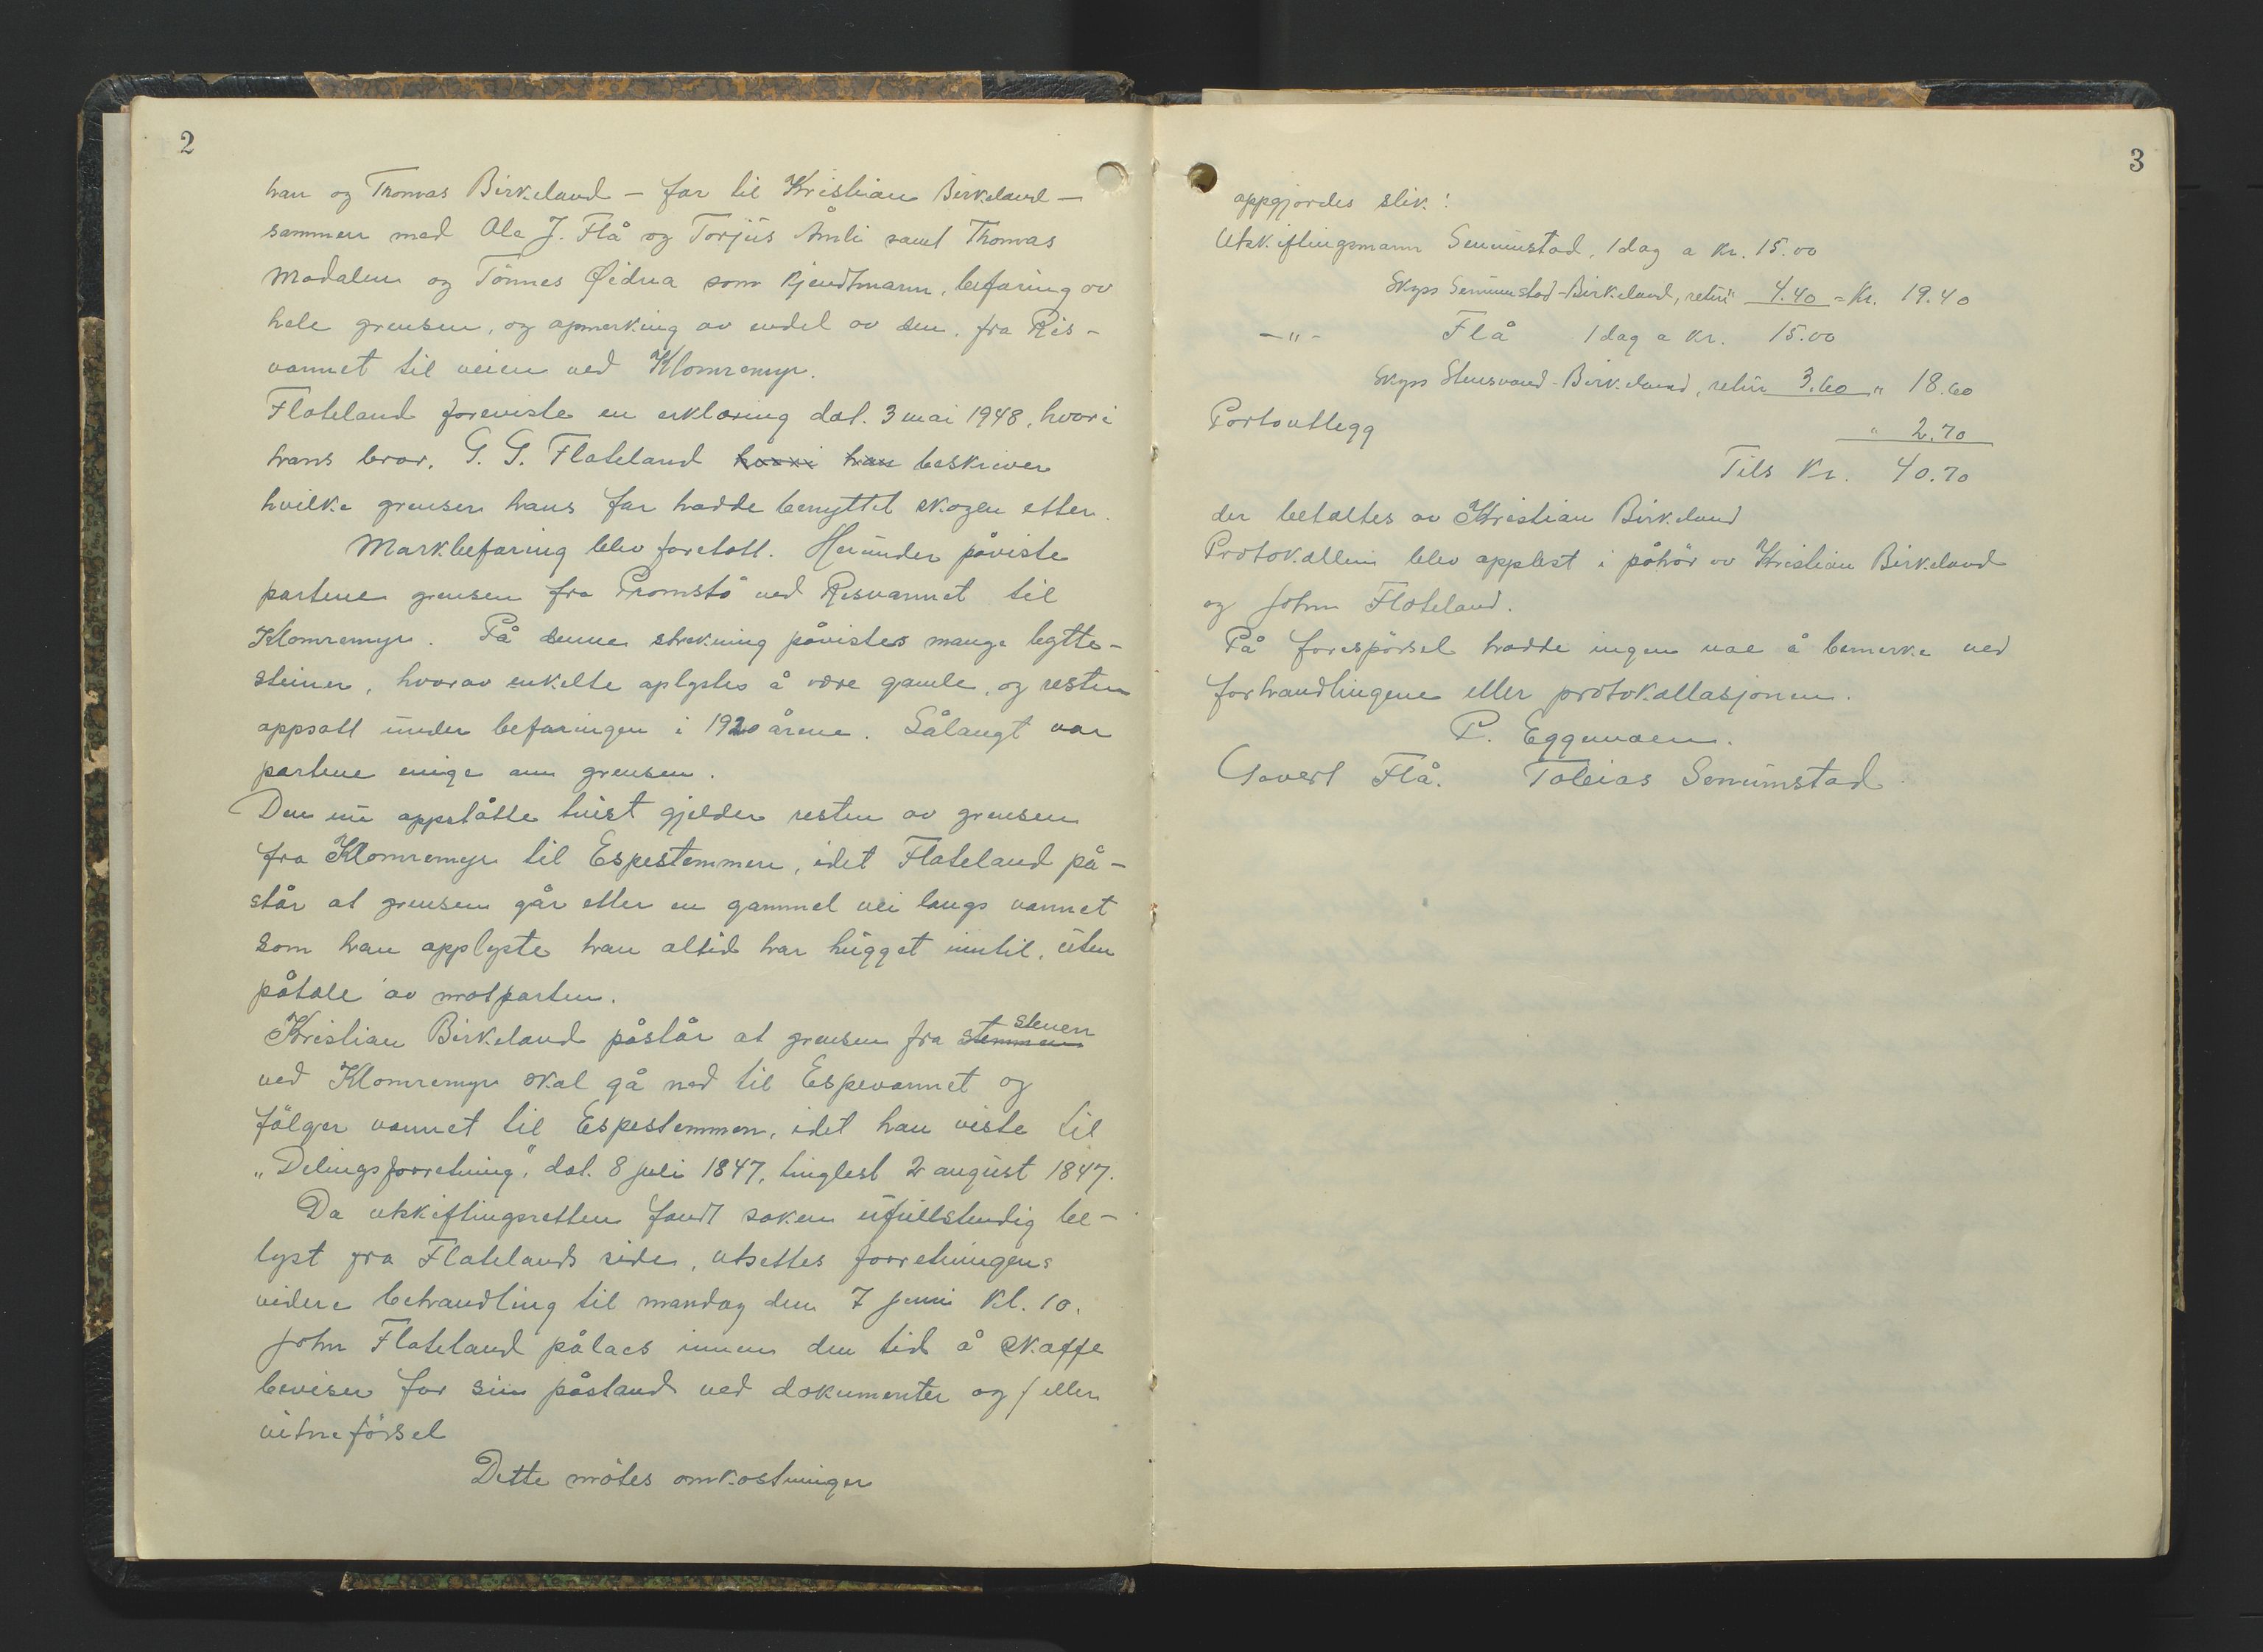 2
han og Thomas Birkeland – far til Kristian Birkeland –
sammen med Ole J. Flå og Torjus Åmli samt Thomas
Modalen og Tönnes Øidna som kjendtmann, befaring av
hele grensen, og opmerking av endel av den, fra Res-
vannet til veien ved Klomremyr.
Flateland foreviste en erklæring dat. 3 mai 1948, hvori
hans bror, G. G. Flateland hvori han beskriver
hvilke grenser hans far hadde benyttet skogen etter.
Markbefaring blev foretatt. Herunder påviste
partene grensen fra Promstö ved Resvannet til
Klomremyr. På denne strekning påvistes mange bytte-
steiner, hvorav enkelte oplystes å være gamle, og resten
oppsatt under befaringen i 1920 årene. Sålangt var
partene enige om grensen.
Den nu oppståtte tvist gjelder resten av grensen
fra Klomremyr til Espestemmen, idet Flateland på-
står at grensen går etter en gammel vei langs vannet
som han opplyste han altid har hugget inntil, uten
påtale av motparten.
Kristian Birkeland påstår at grensen fra stemmen stenen
ved Klomremyr skal gå ned til Espevannet og
fölger vannet til Espestemmen, idet han viste til
„Delingsforretning", dat. 8 juli 1847, tinglest 2 august 1847.
Da utskiftingsretten fandt saken ufullstendig be-
lyst fra Flatelands side, utsettes forretningens
videre behandling til mandag den 7 juni kl. 10.
John Flateland pålaes innen den tid å skaffe
beviser for sin påstand ved dokumenter og / eller
vitneförsel
Dette mötes omkostninger
3
oppgjordes slik:
Utskiftingsmann Senumstad, 1 dag a kr. 15.00
Skyss Senumstad-Birkeland, retur 4.40 = kr. 19.40
–„– Flå 1 dag a kr. 15.00
Skyss Stensvand-Birkeland, retur 3.60 „ 18.60
Portoutlegg „ 2.70
Tils kr. 40.70
der betaltes av Kristian Birkeland
Protokollen blev opplest i påhör av Kristian Birkeland
og John Flateland.
På forespörsel hadde ingen noe å bemerke ved
forhandlingene eller protokollasjonen.
P. Eggemoen.
Govert Flå. Tobias Senumstad